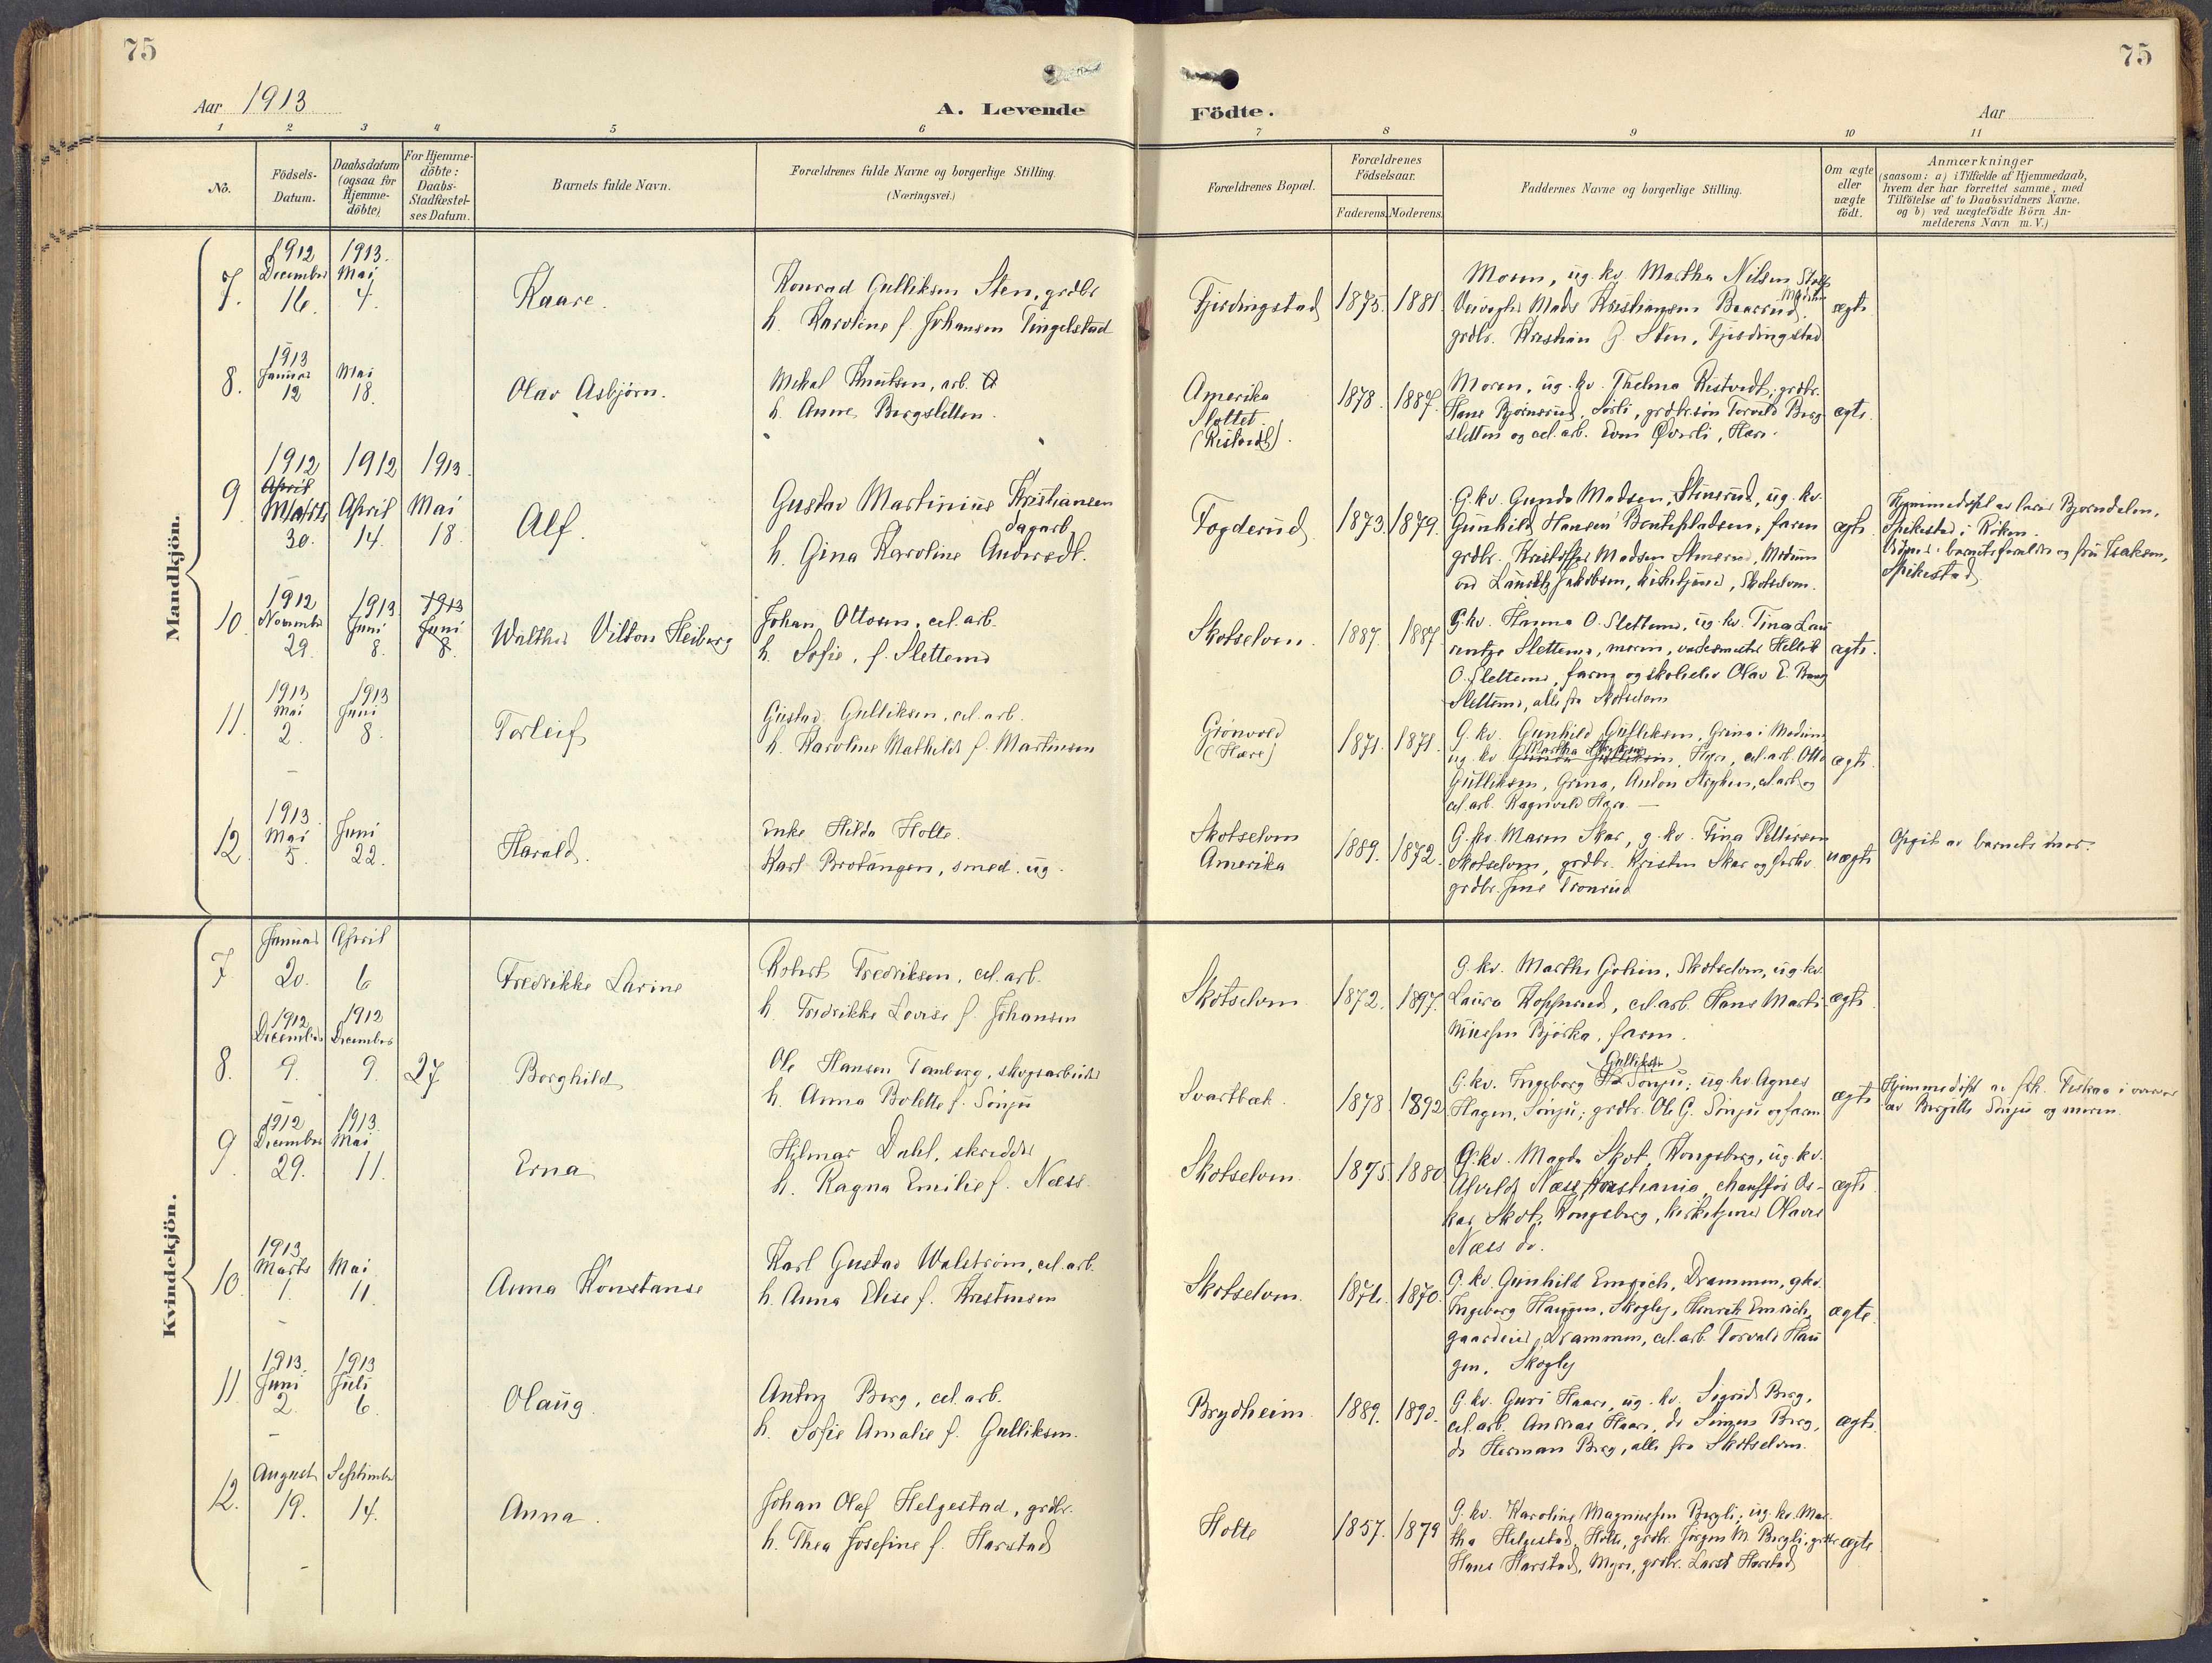 75
75
Aar 1913
A. Levende
Födte.
Aar
1
2
3
4
5
6
7
8
9
10
11
No.
Födsels-
Datum.
Daabsdatum
(ogsaa for
Hjemme-
döbte)
For Hjemme-
döbte:
Daabs-
Stadfæstel-
ses Datum.
Barnets fulde Navn.
Forældrenes fulde Navne og borgerlige Stilling.
(Næringsvei.)
Forældrenes Bopæl.
Forældrenes
Födselsaar.
Faderens.
Moderens.
Faddernes Navne og borgerlige Stilling.
Om ægte
eller
uægte
födt.
Anmærkninger
(saasom: a) i Tilfælde af Hjemmedaab,
hvem der har forrettet samme, med
Tilföielse af to Daabsvidners Navne.
og b) ved uægtefödte Börn An-
melderens Navn m. V.)
Mandkjön.
7.
1912
December
16.
1913.
Mai
4.
Kaare.
Konrad Gulliksen Sten, grdbr
h. Karoline f. Johansen Tingelstad
Fjerdingstad
1875.
1881.
Moren, ug. kv. Martha Nilsen
Veivogter Mads Kristiansen
grdbr. Kristian J. Sten, Fjerdingstad
ægte
8.
1913
Januar
12
Mai
18.
Olav Asbjørn.
Mikal Knutsen, arb.
h. Anne Bergsletten.
Amerika
Slottet
(Ristvedt).
1878.
1887.
Moren, ug. kv. Thelma Ristvedt, grdbr.
Hans Bjørnerud, Sørli, grdbr.søn Torvald Berg
sletten og cel. arb. Even Øverli, Hære.
ægte.
9
1912
April
Marts
30.
1912
April
14.
1913
Mai
18.
Alf.
Gustav Martinius Kristiansen
dagarb.
h. Gina Karoline Andersdt.
Fogderud
1873.
1879.
G. kv. Gunda Madsen, Stenerud, ug. kv.
Gunhild Hansen Bentepladsen, faren
grdbr. Kristoffer Madsen Stenerud, Modum
og Lauritz Jakobsen, kirketjener, Skotselven.
ægte
Hjemmedøpt av lærer Bjørndalen,
Spikestad i Røken.
barnets forældre og fru Isaksen,
Spikestad
10.
1912
November
29.
1913
Juni
8.
1913
Juni
8.
Walther Vilton Heiberg
Johan Ottosen, cel. arb.
h. Sofie, f. Slettemo
Skotselven.
1887.
1887
G. kv. Hanna O. Slettemo, ug. kv. Tina Lau
rentze Slettemo, moren, Hellik
O. Slettemo, faren og skoleelev Olav E.
Slettemo, alle fra Skotselven
ægte.
11.
1913
Mai
2.
1913
Juni
8.
Torleif
Gustav Gulliksen, cel. arb.
h. Karoline Mathilde f. Martinsen
Grønvold
(Hære)
1871.
1871.
G. kv. Gunhild Gulliksen, Grina i Modum
ug. kv. Hære, cel. arb. Otto
Gulliksen, Grina, Anton Stryken, cel. arb. og
cel. arb. Ragnvald Hære. —
ægte
12.
1913
Mai
5.
Juni
22.
Harald.
Enke Hilda Holte.
Karl Brotangen, smed. ug.
Skotselven
Amerika
1889.
1872.
G. kv. Maren Skar, g. kv. Tina Pettersen
Skotselven, grdbr. Kristen Skar og
grdbr. Jens Tronrud
uægte
Opgit av barnets mor.
Kvindekjön.
7.
Januar
20.
April
6
Fredrikke Larine
Robert Fredriksen, cel. arb.
h. Fredrikke Lovise f. Johansen
Skotselven
1872.
1897.
G. kv. Marthe Gohien, Skotselven, ug. kv.
Laura Kopperud, cel. arb. Hans Marti
niussen Bjørka, faren.
ægte
8.
1912
December
9.
1912
December
9.
27
Borghild
Ole Hansen Tanberg, skogsarbeider
h. Anna Bolette f. Sönju
Svartbæk.
1878.
1892
G. kv. Ingeborg Gulliksen Sönju; ug. kv. Agnes
Hagen, Sönju; grdbr. Ole G. Sönju og faren
ægte
Hjemmedøpt av frk. Fiskaa i nærvær
av Bergitte Sönju og moren.
9
1912
December
29.
1913.
Mai
11.
Erna
Hilmar Dahl, skredder
h. Ragna Emilie f. Næss.
Skotselven.
1875.
1880.
G. kv. Magda Skot, Kongsberg, ug. kv.
Alvilde Næss, Kristiania, chauffør Os-
kar Skot, Kongsberg, kirketjener Olaves
Næss do.
ægte
10.
1913
Marts
1.
Mai
11.
Anna Konstanse
Karl Gustav Walstrøm, cel. arb.
h. Anna Elise f. Kristensen
Skotselven.
1876.
1870.
G. kv. Gunhild Emrich, Drammen, g. kv.
Ingeborg Haugen, Skogly, Henrik Emrich
gaardeier, Drammen, cel. arb. Torvald Hau
gen, Skogly
ægte
11
1913.
Juni
2.
1913
Juli
6.
Olaug.
Anton Berg, cel. arb.
h. Sofie Amalie f. Gulliksen.
Brydheim.
1889.
1890.
G. kv. Guri Haare, ug. kv. Sigrid Berg,
cel. arb. Andreas Haare, do Berg,
do Herman Berg, alle fra Skotselven.
ægte
12.
August
19.
September
14.
Anna.
Johan Olaf Helgestad, grdbr.
h. Thea Josefine f. Harstad
Holte
1857.
1879
G. kv. Karoline Magnussen Bergli; ug. kv. Mar
tha Helgestad, Holte, grdbr. Jørgen M. Bergli, grdbr
Hans Harstad, Myre, grdbr. Harstad
ægte